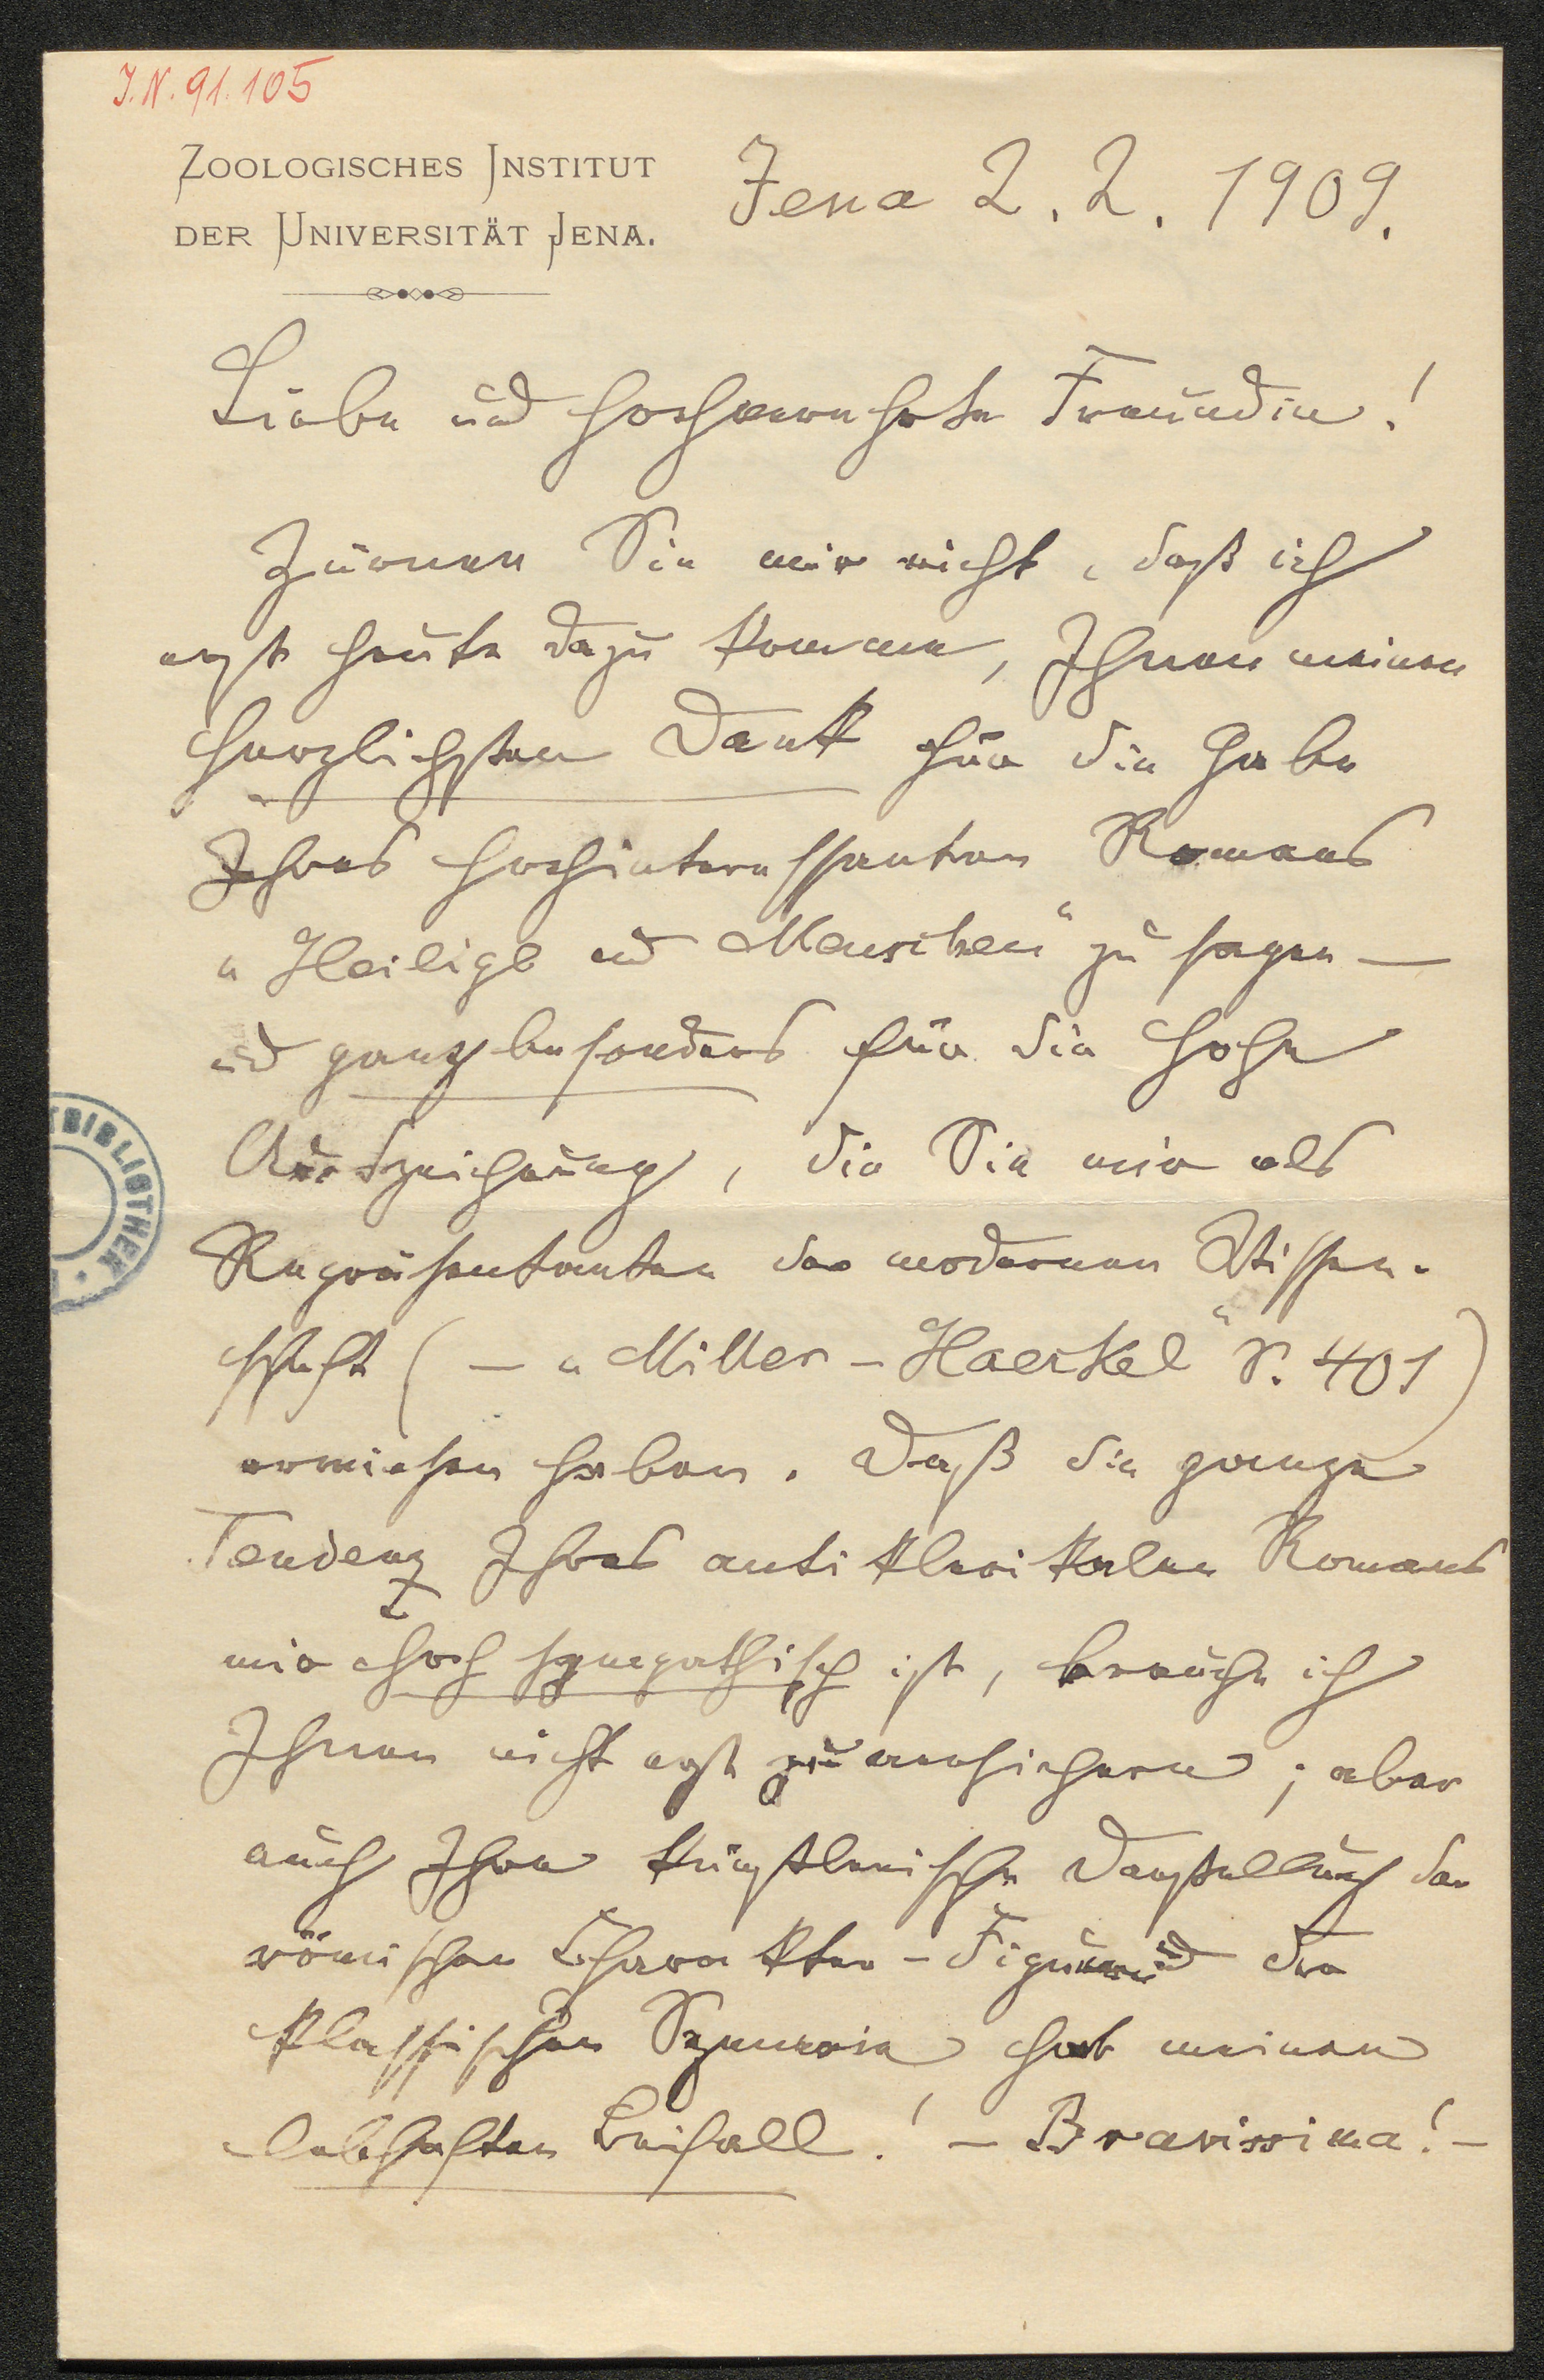 J.N. 91.105
ZOOLOGISCHES INSTITUT
DER UNIVERSITÄT JENA.
Jena 2. 2. 1909.
Liebe und hochverehrte Freundin!
Zürnen Sie mir nicht, daß ich
erst heute dazu komme, Ihnen meinen
herzlichsten Dank für die Gabe
Ihres hochinteressanten Romans
„Heilige und Menschen“ zu sagen —
und ganz besonders für die hohe
Auszeichnung, die Sie mir als
Repräsentanten der modernen Wissen-
schaft (— „Miller-Haeckel“ S. 401)
erwiesen haben. Daß die ganze
Tendenz Ihres antiklerikalen Romans
mir hoch sympathisch ist, brauche ich
Ihnen nicht erst zu versichern; aber
auch Ihre künstlerische Darstellung der
römischen Charakter-Figuren und der
klassischen Scenerie hat meinen
lebhaften Beifall! — Bravissima! —
TBIBLIOTHEK